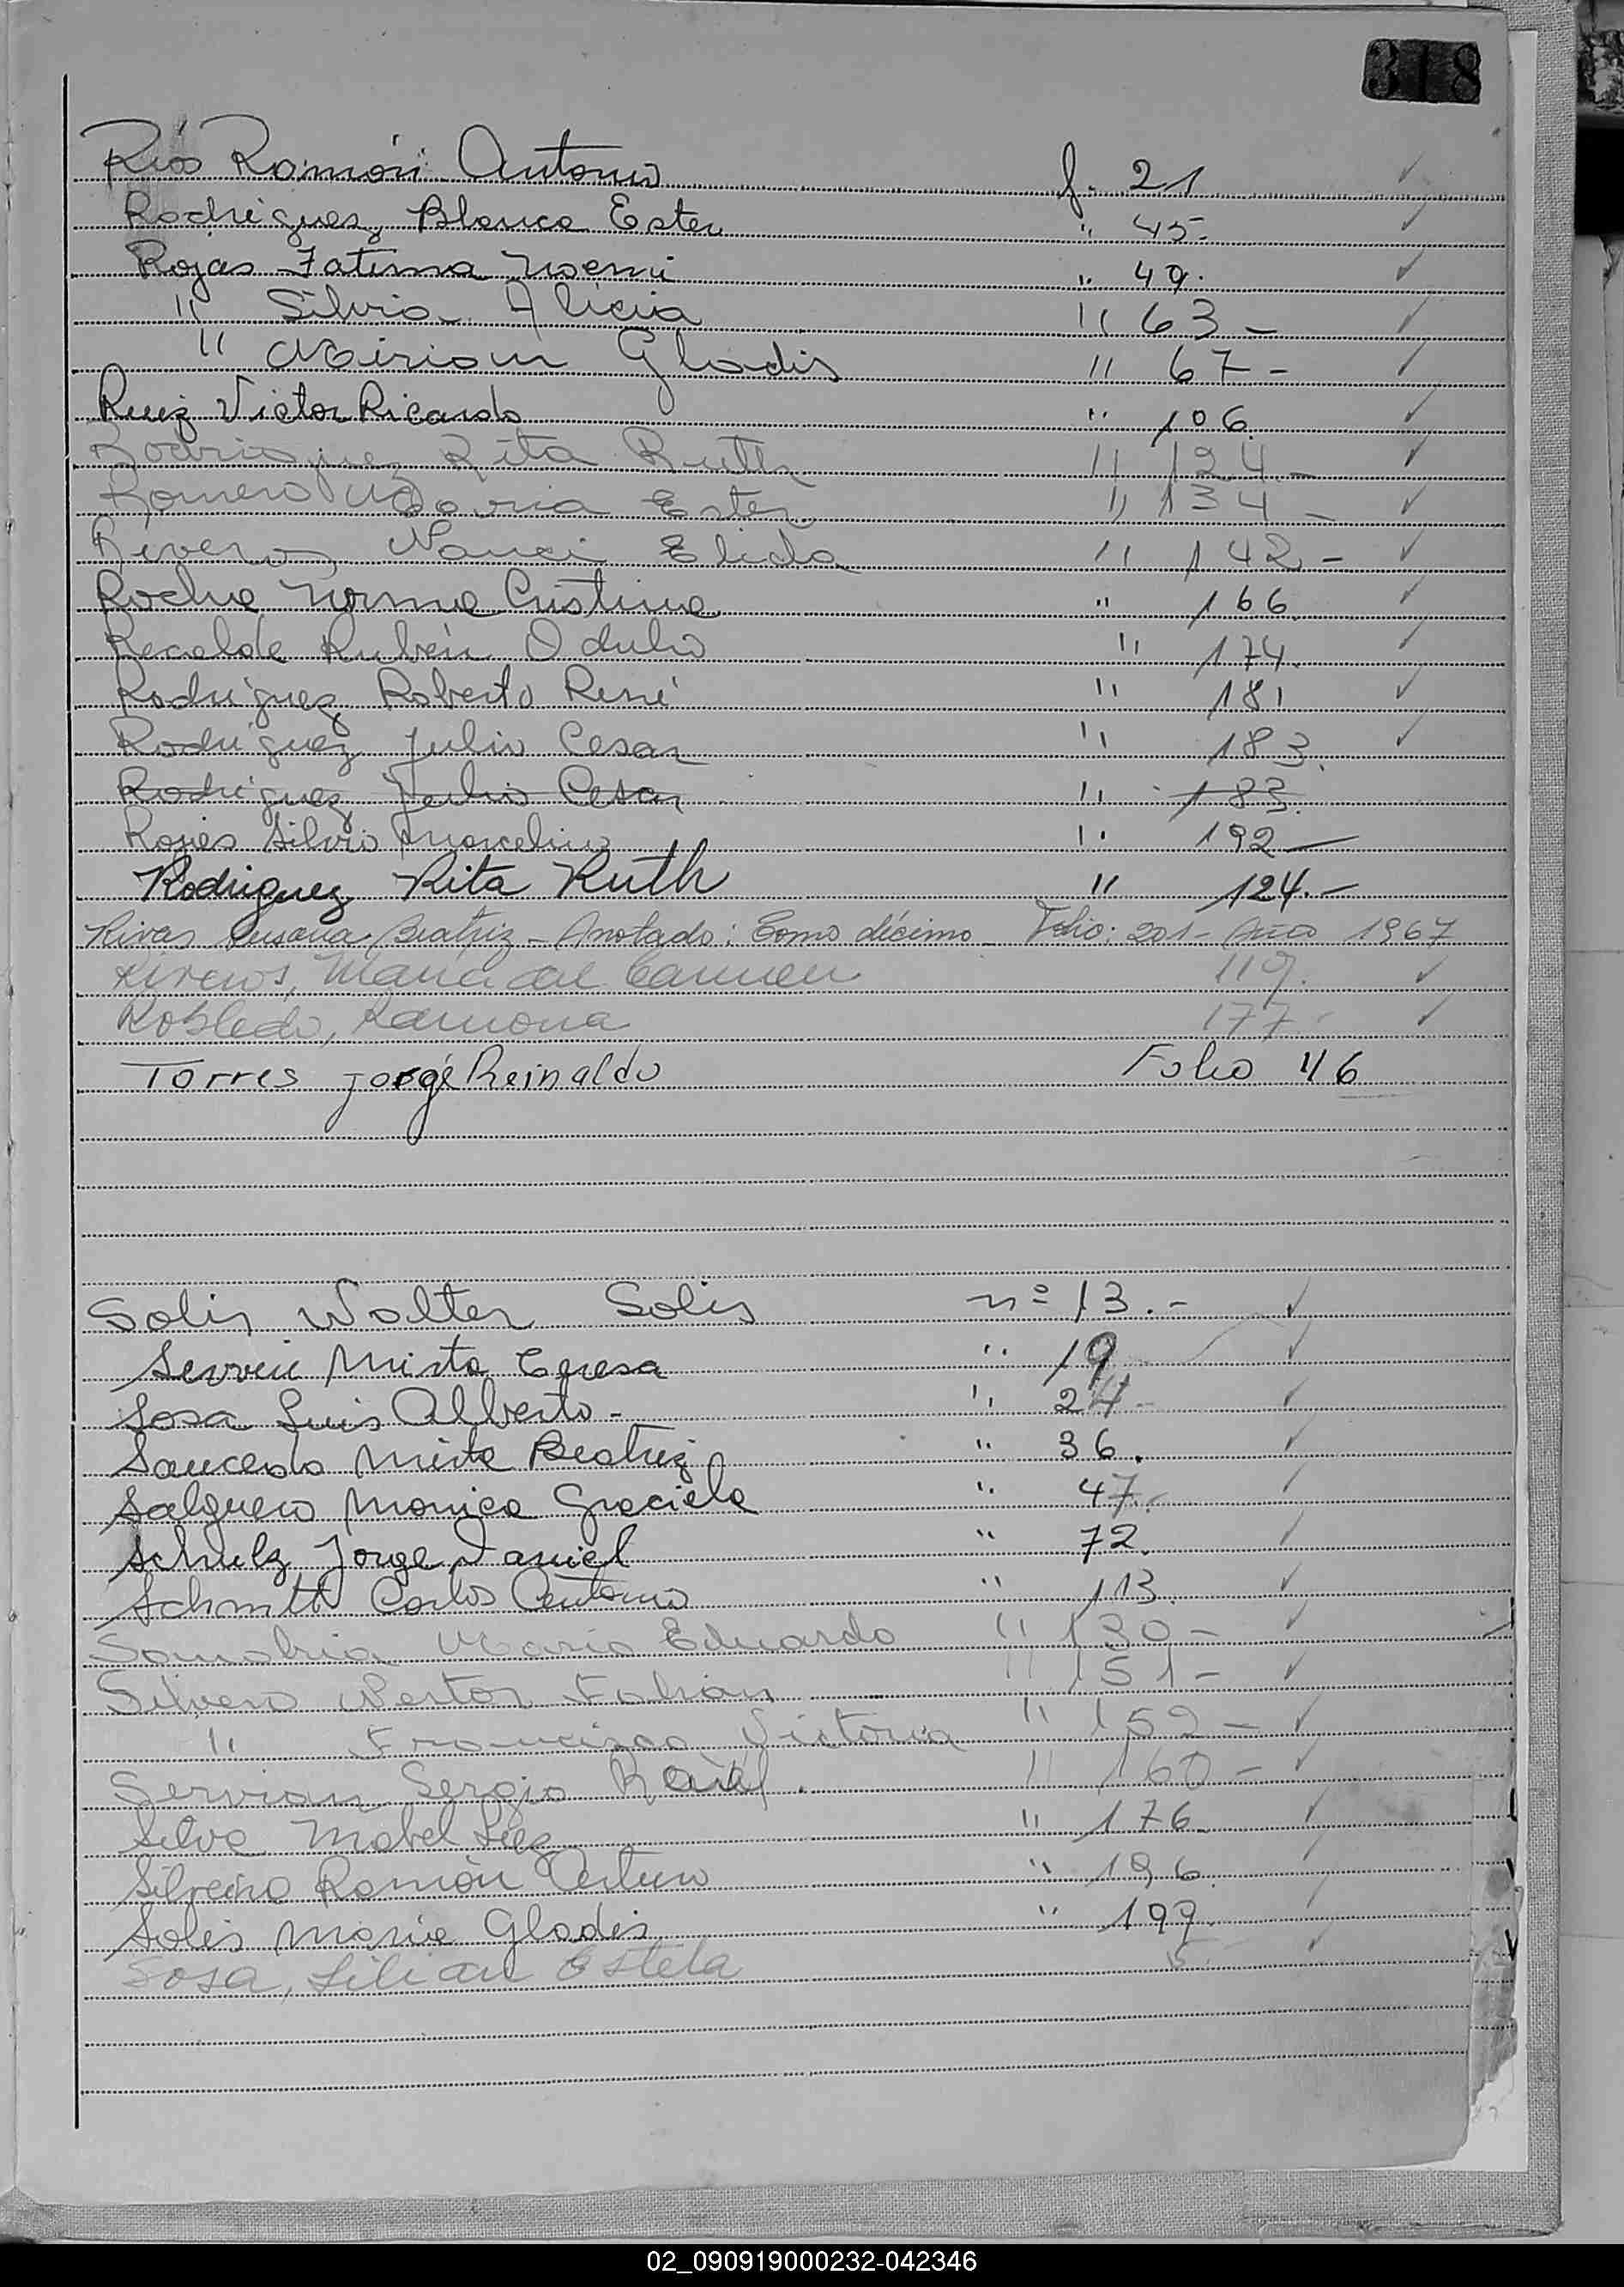 318
Ríos Ramón Antonio f. 21 ✓
Rodriguez, Blanca Ester " 45- ✓
Rojas Fatima Noemi " 49. ✓
" Silvia Alicia " 63 - ✓
" Miriam Gladis " 67 - ✓
Ruiz Victor Ricardo " 106. ✓
Rodriguez Rita Ruth " 124 - ✓
Romero Maria Ester " 134 - ✓
Riveros Nanci Elida " 142 - ✓
Rocha Norma Cristina " 166 ✓
Recalde Rubén Odulio " 174. ✓
Rodriguez Roberto René " 181 ✓
Rodriguez Julio Cesar " 183. ✓
Rodriguez Julio Cesar " 183.
Rojas Silvio Marcelino " 192 —
Rodriguez Rita Ruth " 124. -
Rivas Susana Beatriz - Anotado: Tomo décimo - Folio: 201 - Año 1967
Riveros, María del Carmen 119. ✓
Robledo, Ramona 177 - ✓
Torres Jorge Reinaldo Folio 46
Solis Walter Solis nº 13. - ✓
Servin Mirta Teresa " 19 ✓
Sosa Luis Alberto - " 24 - ✓
Saucedo Mirta Beatriz " 36. ✓
Salguero Monica Graciela " 47. - ✓
Schulz Jorge Daniel " 72. ✓
Schmitt Carlos Antonio " 113. ✓
Sanabria Mario Eduardo " 130 - ✓
Silvero Nestor Fabian " 151 - ✓
" Francisca Victoria " 152 - ✓
Servian Sergio Raúl. " 160 - ✓
Silva Mabel Liz " 176. ✓
Silveira Ramón Arturo " 196. ✓
Solis Maria Gladis " 199. ✓
Sosa, Lilian Estela 5. ✓
02_090919000232-042346